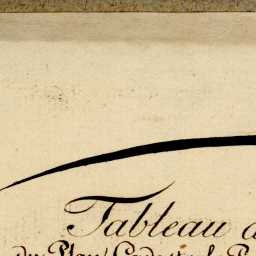 Tableau d
du Plan Cadast